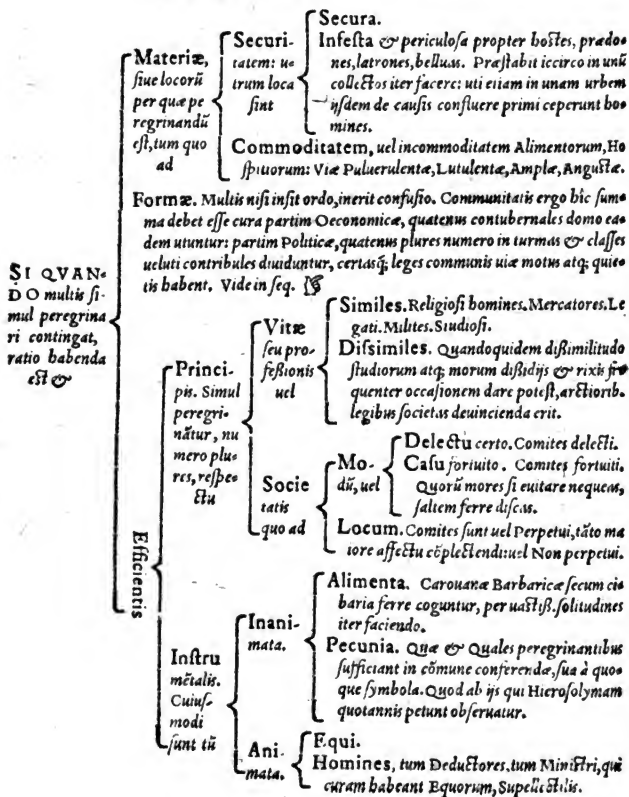 SI QVAN-
DO multis ſi-
mul peregrina
ri contingat,
ratio habenda
eſt &
Materiæ,
ſiue locorũ
per quæ pe
regrinandũ
eſt, tum quo
ad
Securi-
tatem: u-
trum loca
ſint
Secura.
Infeſta & periculoſa propter hoſtes, prædo-
nes, latrones, belluas. Præſtabit iccirco in unũ
collectos iter facere: uti etiam in unam urbem
iſdem de cauſis confluere primi ceperunt ho-
mines.
Commoditatem, uel incommoditatem Alimentorum, Ho
ſpitiorum: Viæ Puluerulentæ, Lutulentæ, Amplæ, Anguſtæ.
Formæ. Multis niſi inſit ordo, inerit confuſio. Communitatis ergo hîc ſum-
ma debet eſſe cura partim Oeconomicæ, quatenus contubernales domo ea-
dem utuntur: partim Politicæ, quatenus plures numero in turmas & claſſes
ueluti contribules diuiduntur, certasq; leges communis uiæ motus atq; quie-
tis habent. Vide in ſeq. ☞
Efficientis
Princi-
pis. Simul
peregri-
nãtur, nu
mero plu-
res, reſpe-
ctu
Vitæ
ſeu pro-
feßionis
uel
Similes. Religioſi homines. Mercatores. Le
gati. Milites. Studioſi.
Diſsimiles. Quandoquidem dißimilitudo
ſtudiorum atq; morum dißidijs & rixis fre
quenter occaſionem dare poteſt, arctiorib.
legibus ſocietas deuincienda erit.
Socie
tatis
quo ad
Mo-
dũ, uel
Delectu certo. Comites delecti.
Caſu fortuito. Comites fortuiti.
Quorũ mores ſi euitare nequeas,
ſaltem ferre diſcas.
Locum. Comites ſunt uel Perpetui, tãto ma
iore affectu cõplectendi: uel Non perpetui.
Inſtru
mẽtalis.
Cuiuſ-
modi
ſunt tũ
Inani-
mata.
Alimenta. Carouanæ Barbaricæ ſecum ci-
baria ferre coguntur, per uaſtiß. ſolitudines
iter faciendo.
Pecunia. Quæ & Quales peregrinantibus
ſufficiant in cõmune conferendæ, ſua à quo-
que ſymbola. Quod ab ijs qui Hieroſolymam
quotannis petunt obſeruatur.
Ani-
mata.
Equi.
Homines, tum Deductores, tum Miniſtri, qui
curam habeant Equorum, Supellectilis.